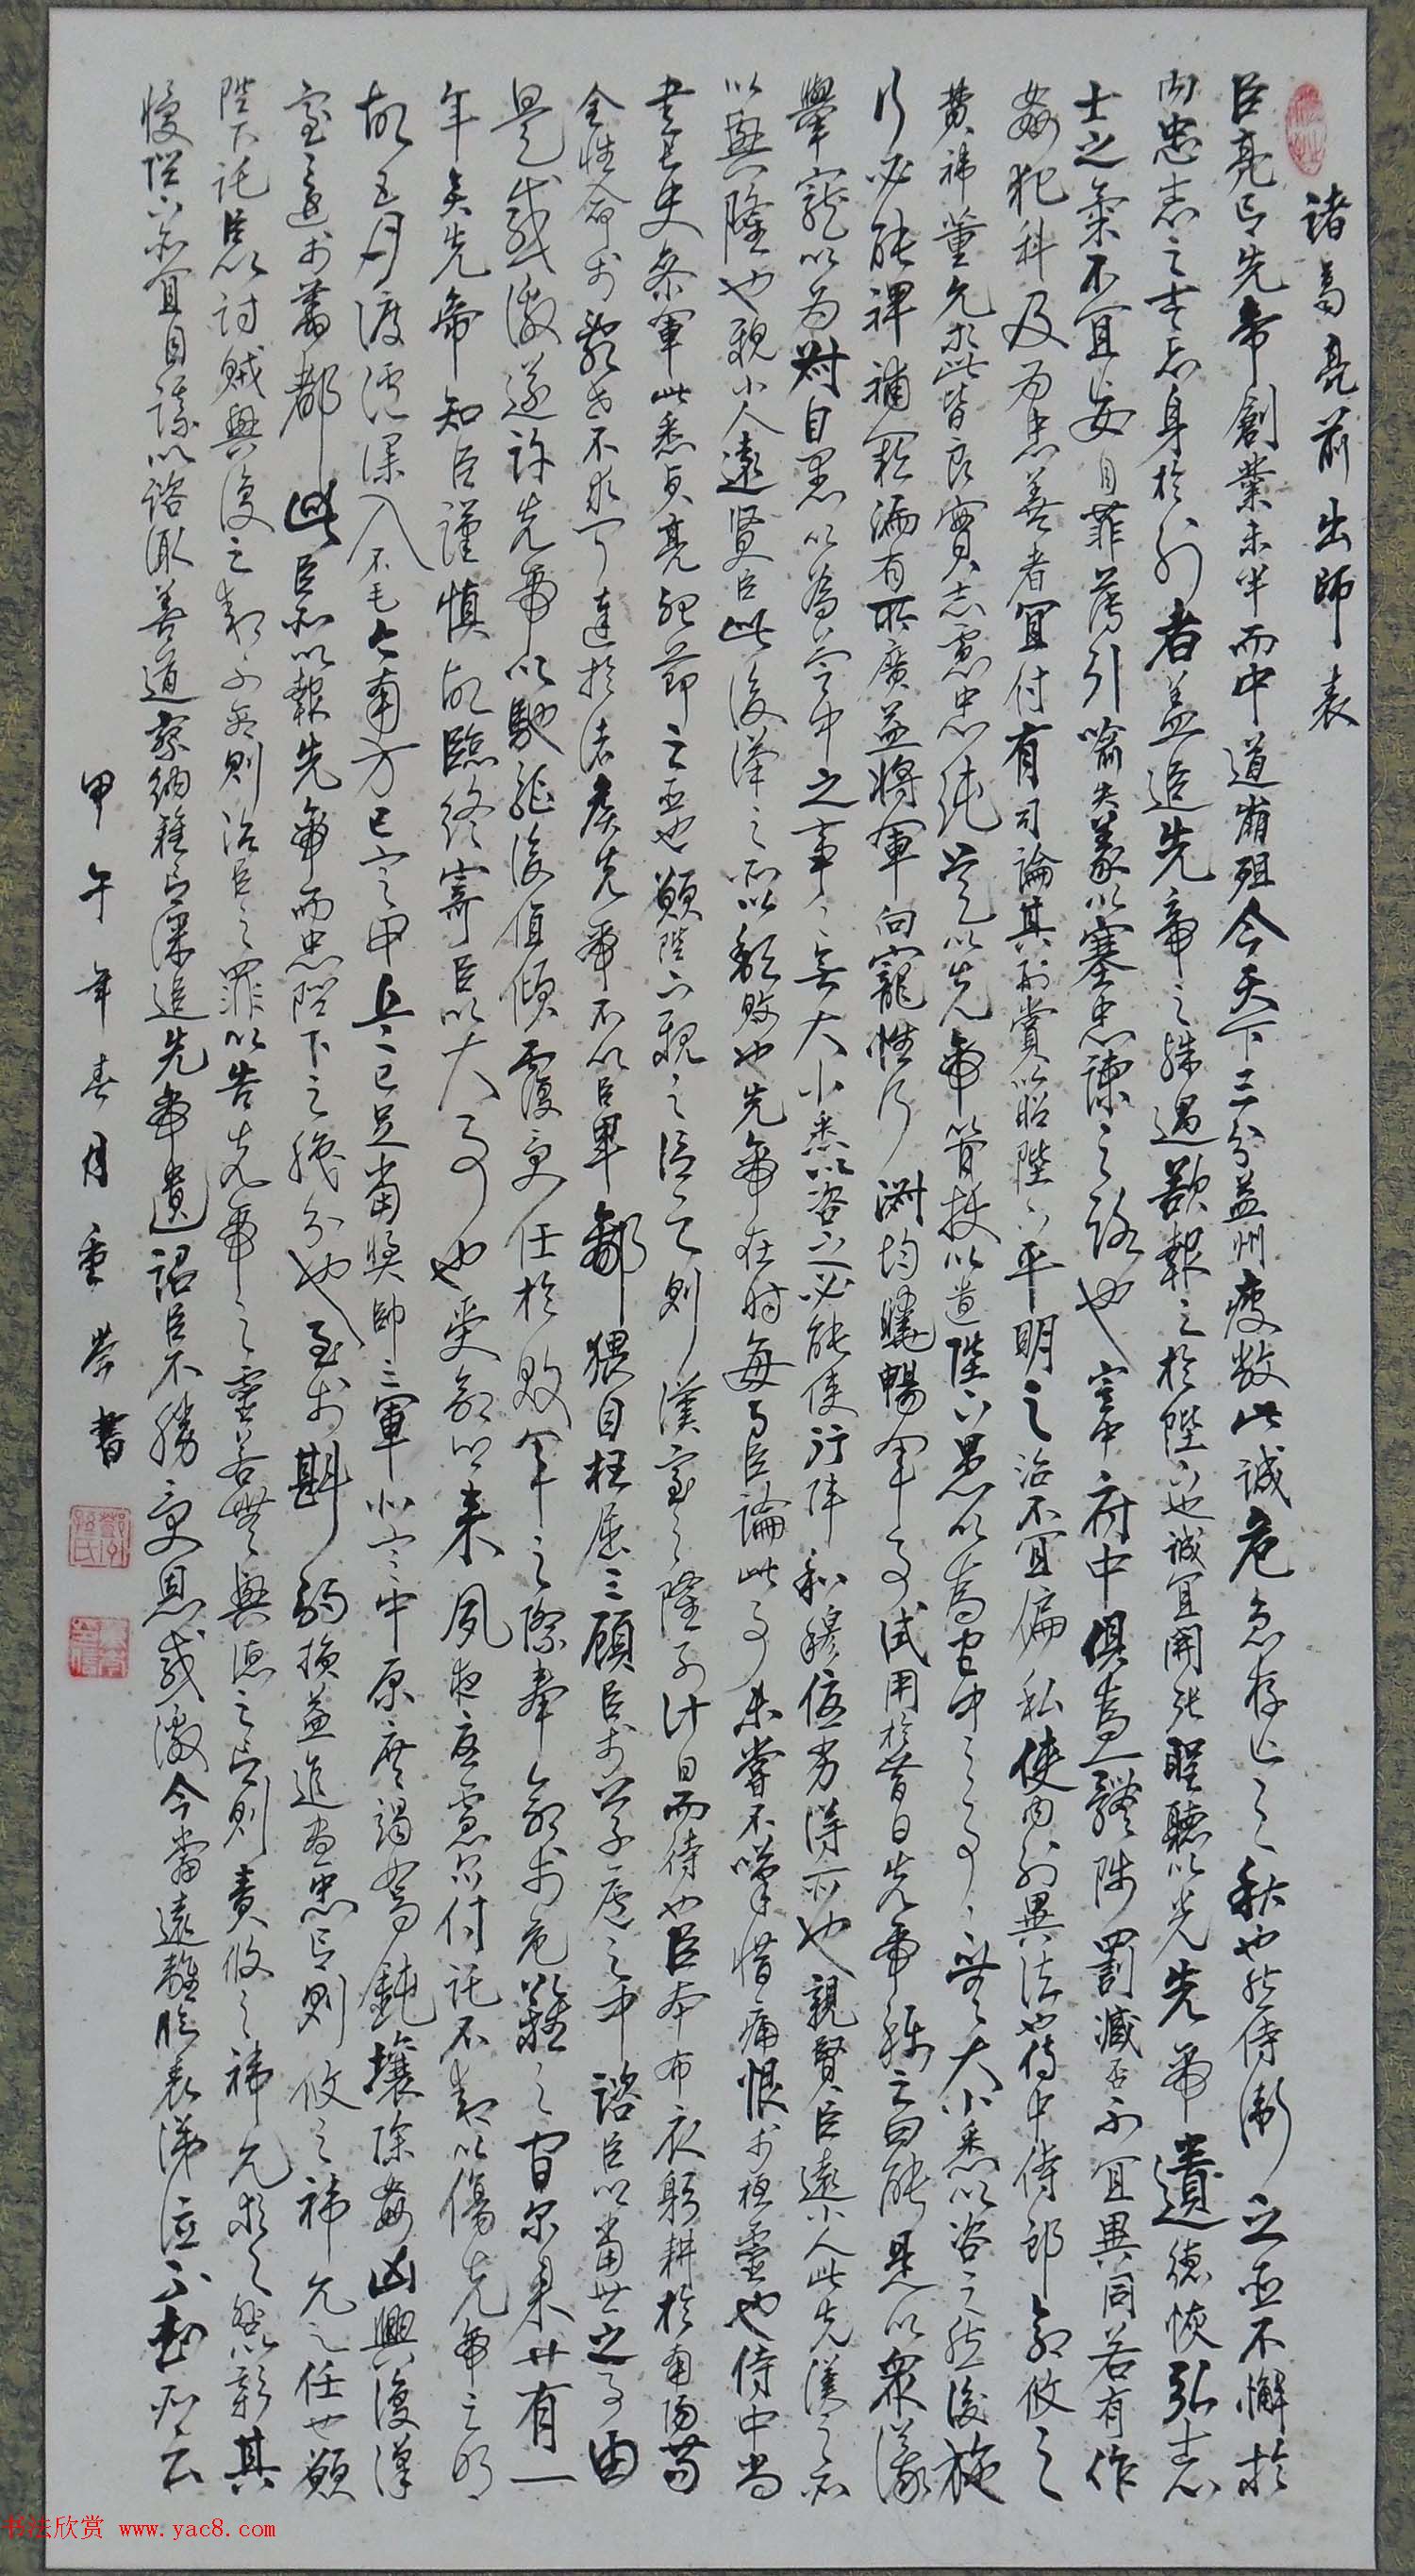 诸葛亮前出師表
臣亮言先帝創業未半而中道崩殂今天下三分益州疲敝此誠危急存亡之秋也然侍衛之臣不懈於
内忠志之士忘身於外者盖追先帝之殊遇欲報之於陛下也誠宜開張聖聽以光先帝遺德恢弘志
士之氣不宜妄自菲薄引喻失義以塞忠諫之路也宫中府中俱為一體陟罰臧否不宜異同若有作
姦犯科及為忠善者宜付有司論其刑賞以昭陛下平明之治不宜偏私使内外異法也侍中侍郎郭攸之
費禕董允等此皆良實志慮忠純是以先帝簡拔以遺陛下愚以為宫中之事事無大小悉以咨之然後施
行必能裨補闕漏有所廣益將軍向寵性行淑均曉暢軍事試用於昔日先帝稱之曰能是以衆議
舉寵以為督愚以為營中之事事無大小悉以咨之必能使行陣和穆優劣得所也親賢臣遠小人此先漢之所
以興隆也親小人遠賢臣此後漢之所以頹敗也先帝在時每與臣論此事未嘗不嘆惜痛恨於桓靈也侍中尚
書長史參軍此悉貞亮死節之臣也願陛下親之信之則漢室之隆可計日而待也臣本布衣躬耕於南陽苟
全性命於亂世不求聞達於諸侯先帝不以臣卑鄙猥自枉屈三顧臣於草廬之中諮臣以當世之事由
是感激遂許先帝以馳驅後值傾覆受任於敗軍之際奉命於危難之間尔來廿有一
年矣先帝知臣謹慎故臨終寄臣以大事也受命以來夙夜憂慮恐付託不效以傷先帝之明
故五月渡瀘深入不毛今南方已定甲兵已足當獎帥三軍北定中原庶竭駑鈍攘除姦凶興復漢
室還於舊都此臣所以報先帝而忠陛下之職分也至於斟酌損益進盡忠言則攸之禕允之任也願
陛下託臣以討賊興復之效不效則治臣之罪以告先帝之靈若無興德之言則責攸之禕允等之咎以彰其
慢陛下亦宜自謀以諮諏善道察納雅言深追先帝遺詔臣不勝受恩感激今當遠離臨表涕泣不知所云
甲午年春月重榮書
书法欣赏 www.yac8.com